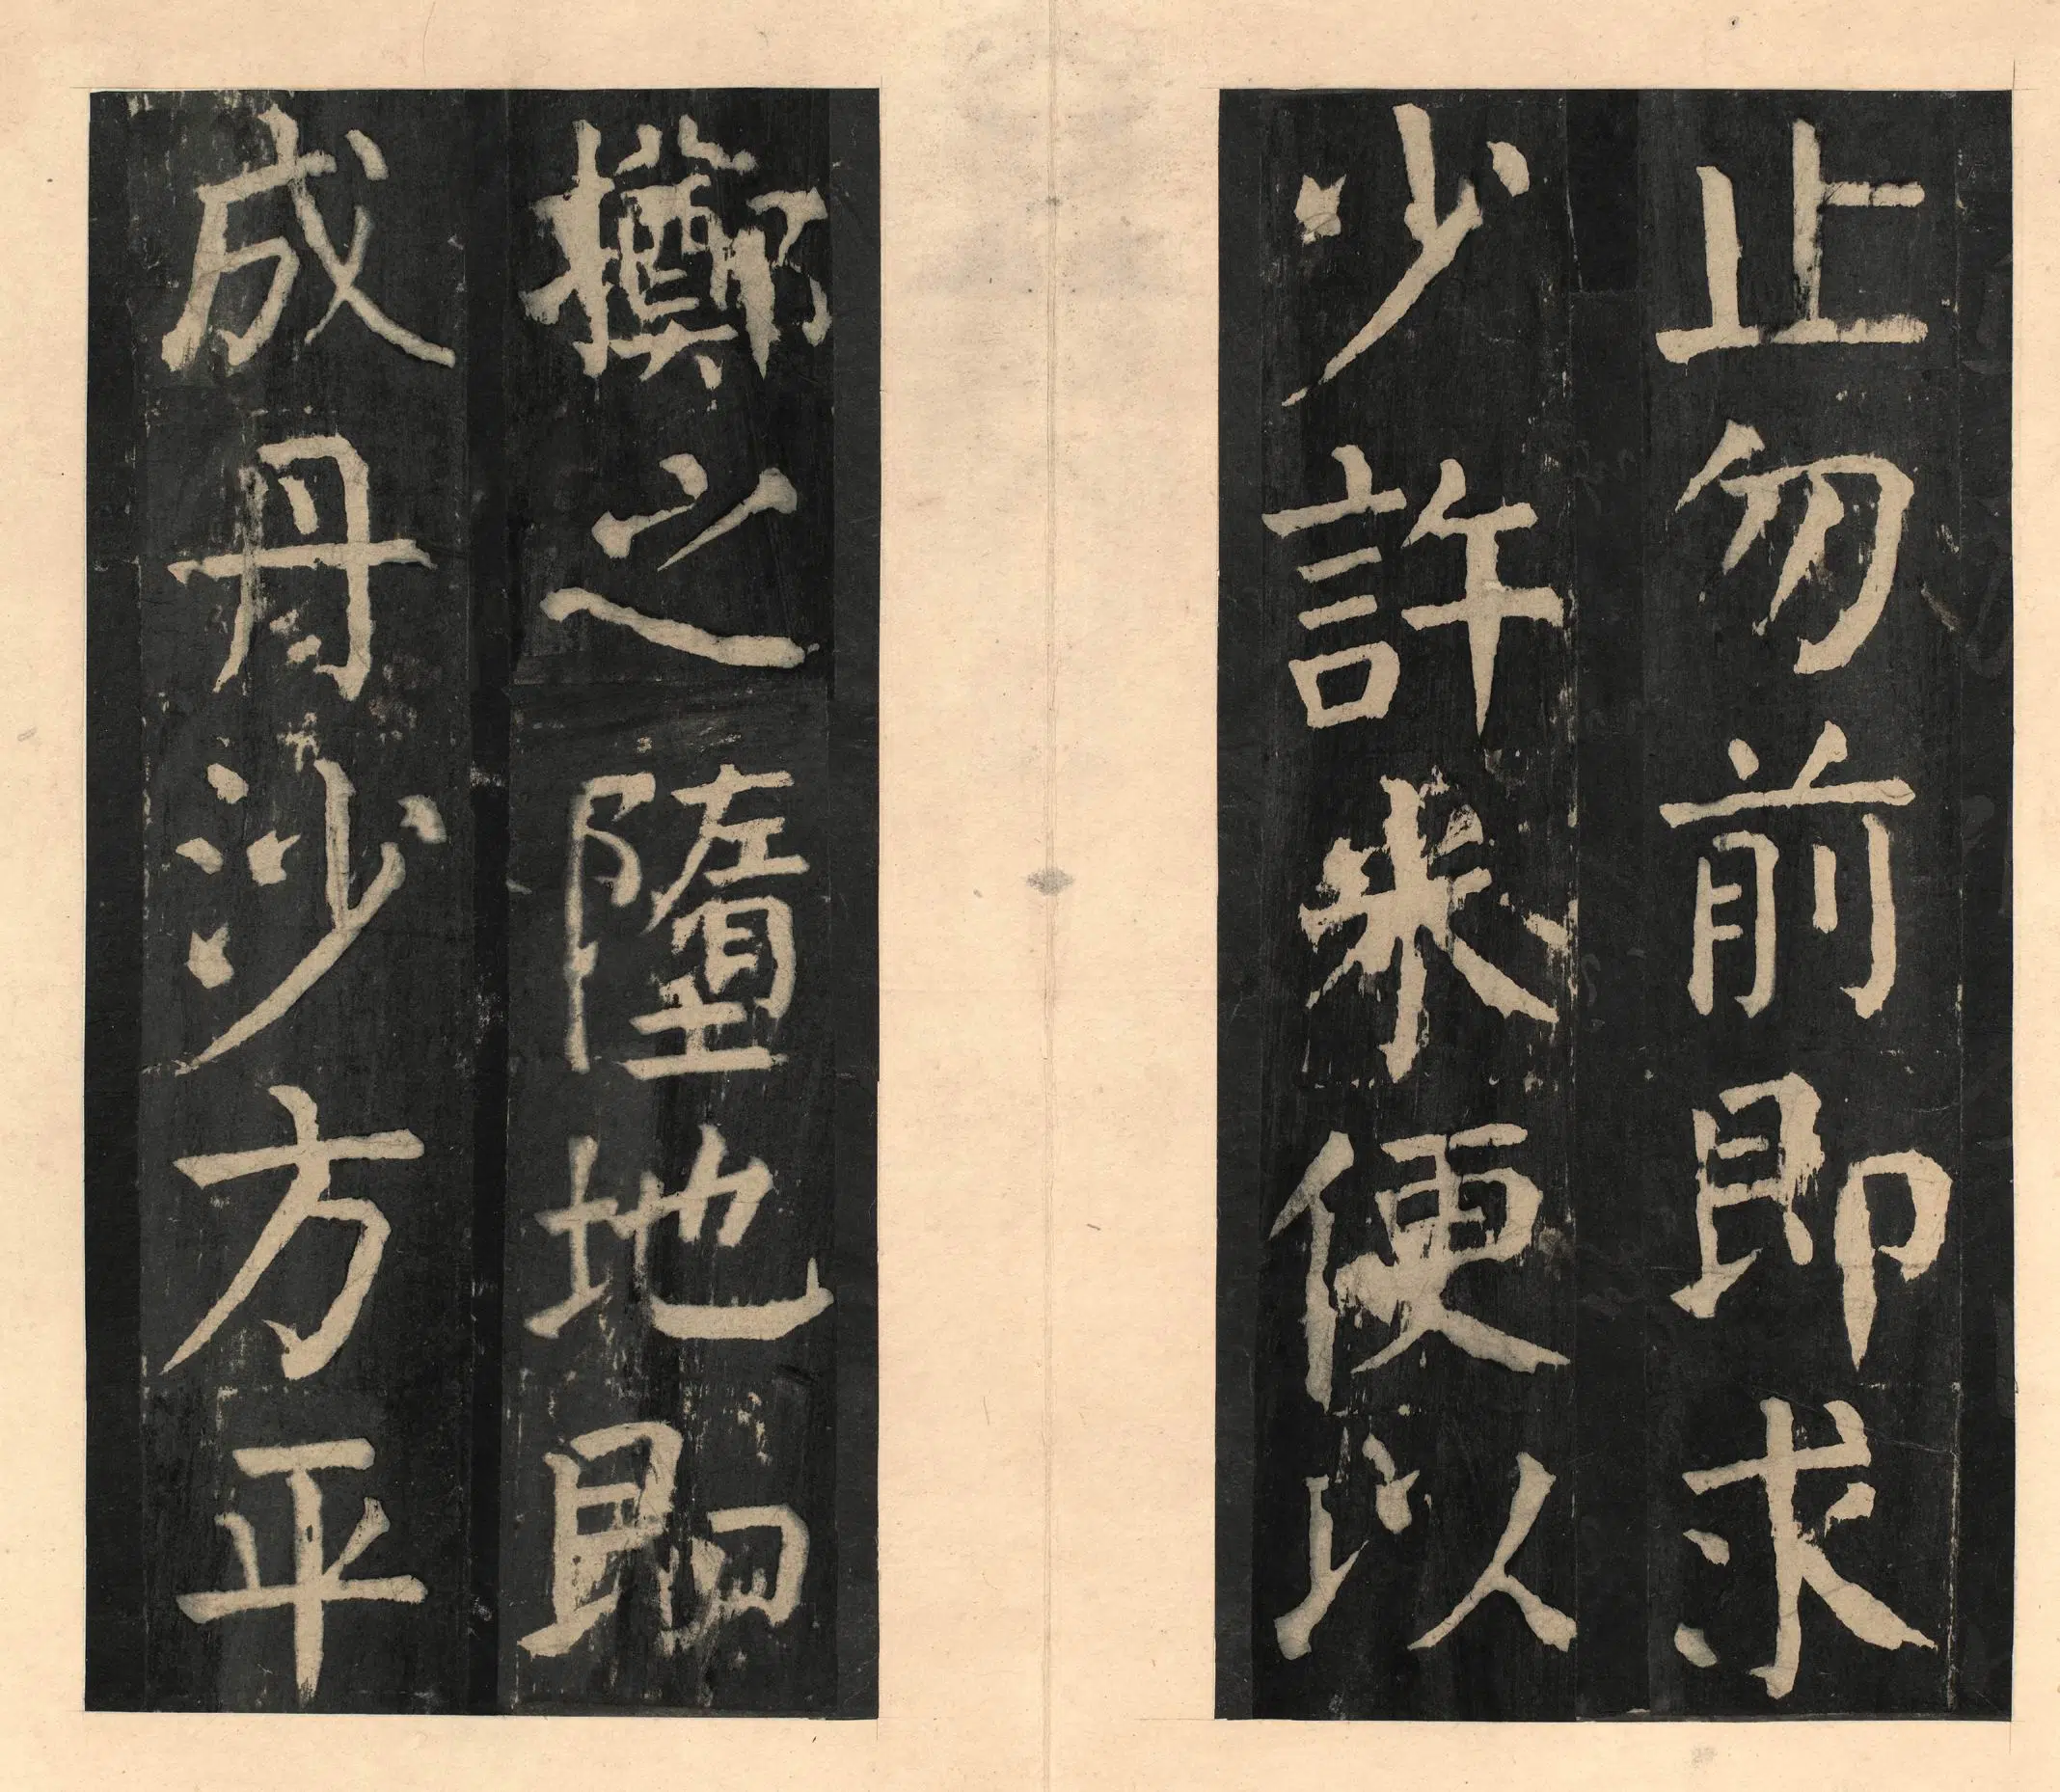 止勿前即求
少許米便以
擲之墮地即
成丹沙方平